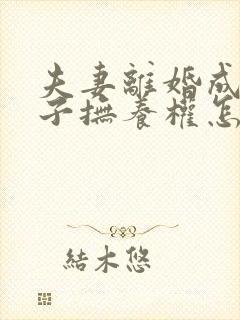 夫妻離婚成
子撫養權怎
結木悠